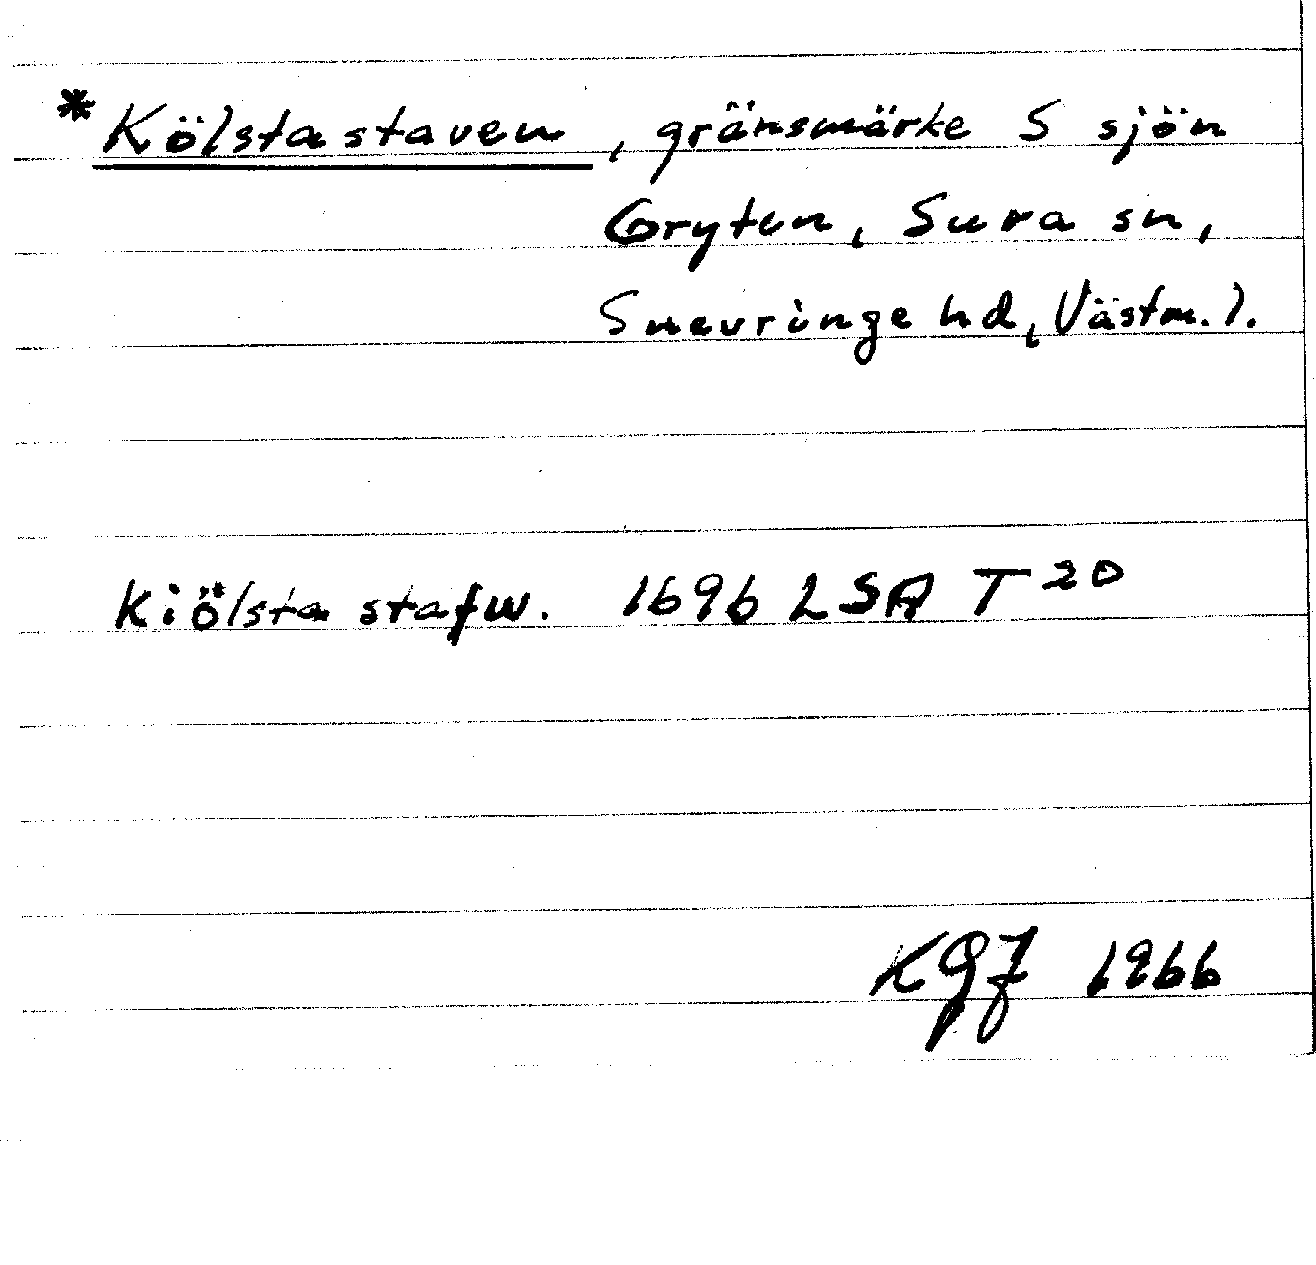 * Kölstastaven, gränsmärke S sjön
Gryten, Sura sn,
Snevringe hd, Västm. l.
Kiölsta stafw. 1696 LSA T 20
KGJ 1966